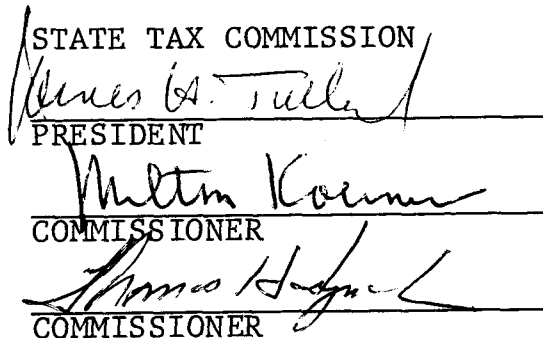 STATE TAX COMMISSION
James H. Tully
PRESIDENT
Milton Koerner
COMMISSIONER
Thomas H. Lynch
COMMISSIONER